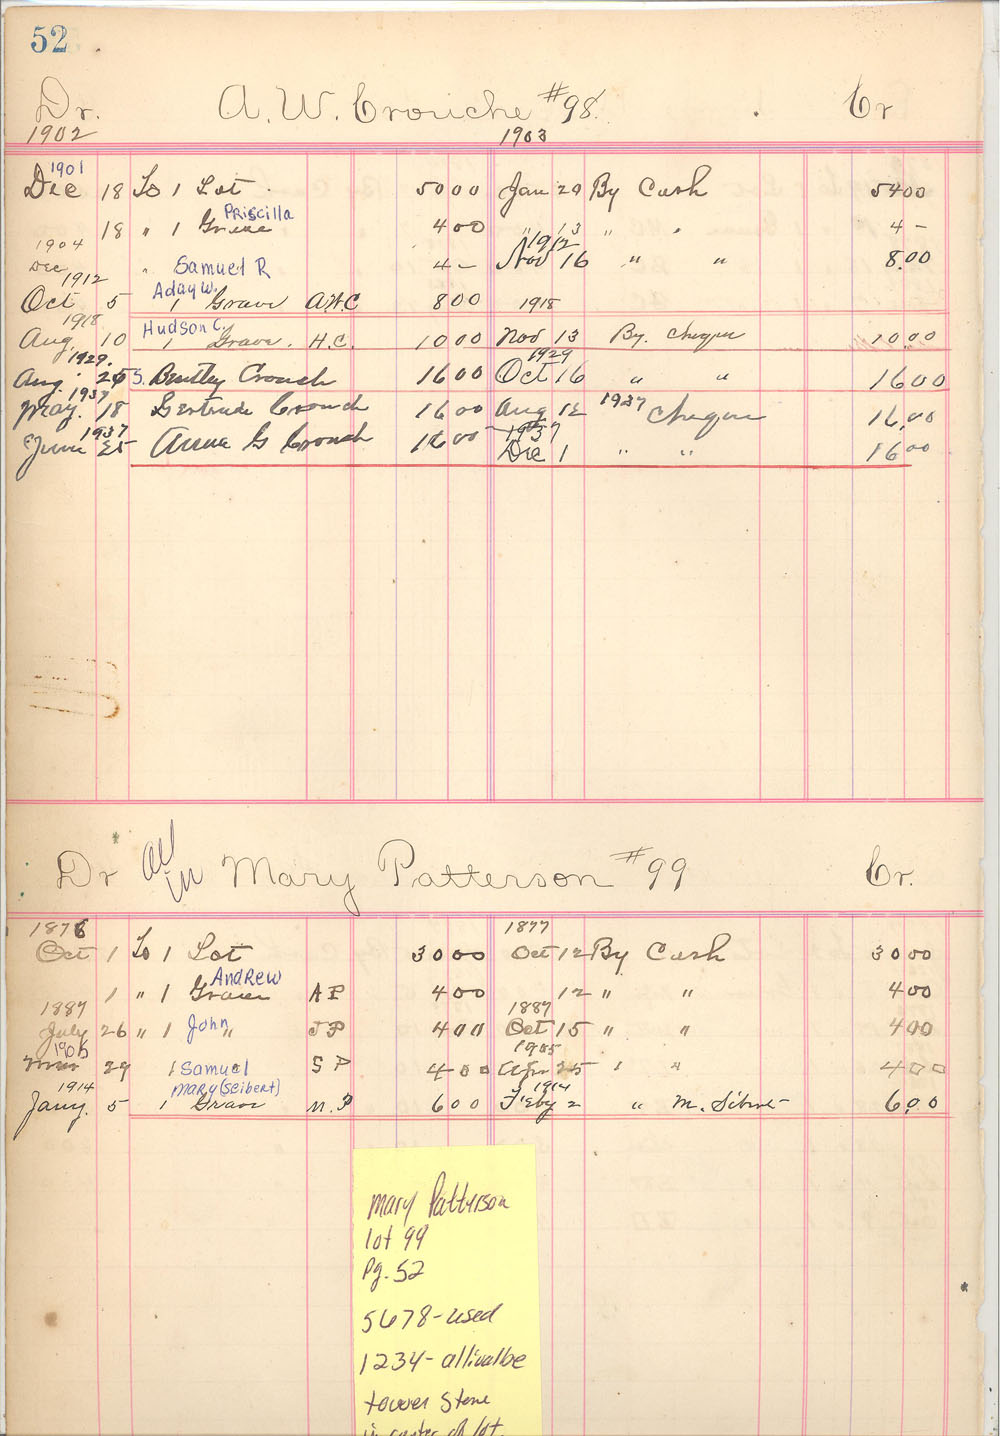 52
Dr. A. W. Crouche #98. Cr
1902 1903
1901
Dec 18 To 1 Lot 50 00 Jan 29 By Cash 54 00
Priscilla
18 " 1 Grave 4 00 " 13 " " 4 -
1904 1912
Dec " Samuel R 4 - Nov 16 " " 8.00
1912 Aday W.
Oct 5 1 Grave A.W.C 8 00 1918
1918 Hudson C.
Aug. 10 1 Grave. H.C. 10 00 Nov 13 By. Cheque 10.00
1929. 1929
Aug. 25 S. Bentley Crouch 16 00 Oct 16 " " 16 00
1937
May. 18 Gertrude Crouch 16 00 Aug 12 1937 Cheque 16.00
1937 1937
June 25 Anna G Crouch 16 00 Dec 1 " " 16 00
Dr all in Mary Patterson #99 Cr.
1876 1877
Oct 1 To 1 Lot 30 00 Oct 12 By Cash 30 00
Andrew
1 " 1 Grave A P 4 00 12 " " 4 00
1887 1887
July 26 " 1 John " J P 4 00 Oct 15 " " 4 00
1905 1905
29 1 Samuel S P 4 00 Apr 25 " " 4 00
1914 Mary (Seibert) 1914
Jany. 5 1 Grave M. P 6 00 Feby 2 " M. 6.00
Mary Patterson
lot 99
Pg. 52
5678 - used
1234 - allivalbe
tower Stone
in center of lot.